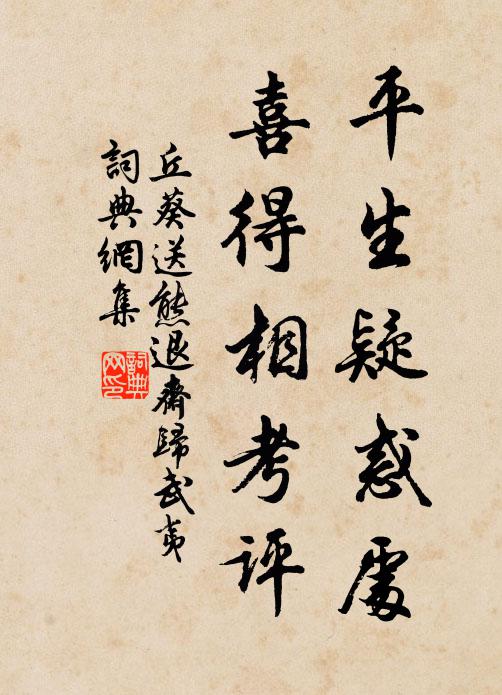 平生疑惑處
喜得相考評
丘葵送熊退齋歸武夷
詞典網集
詞典
网印